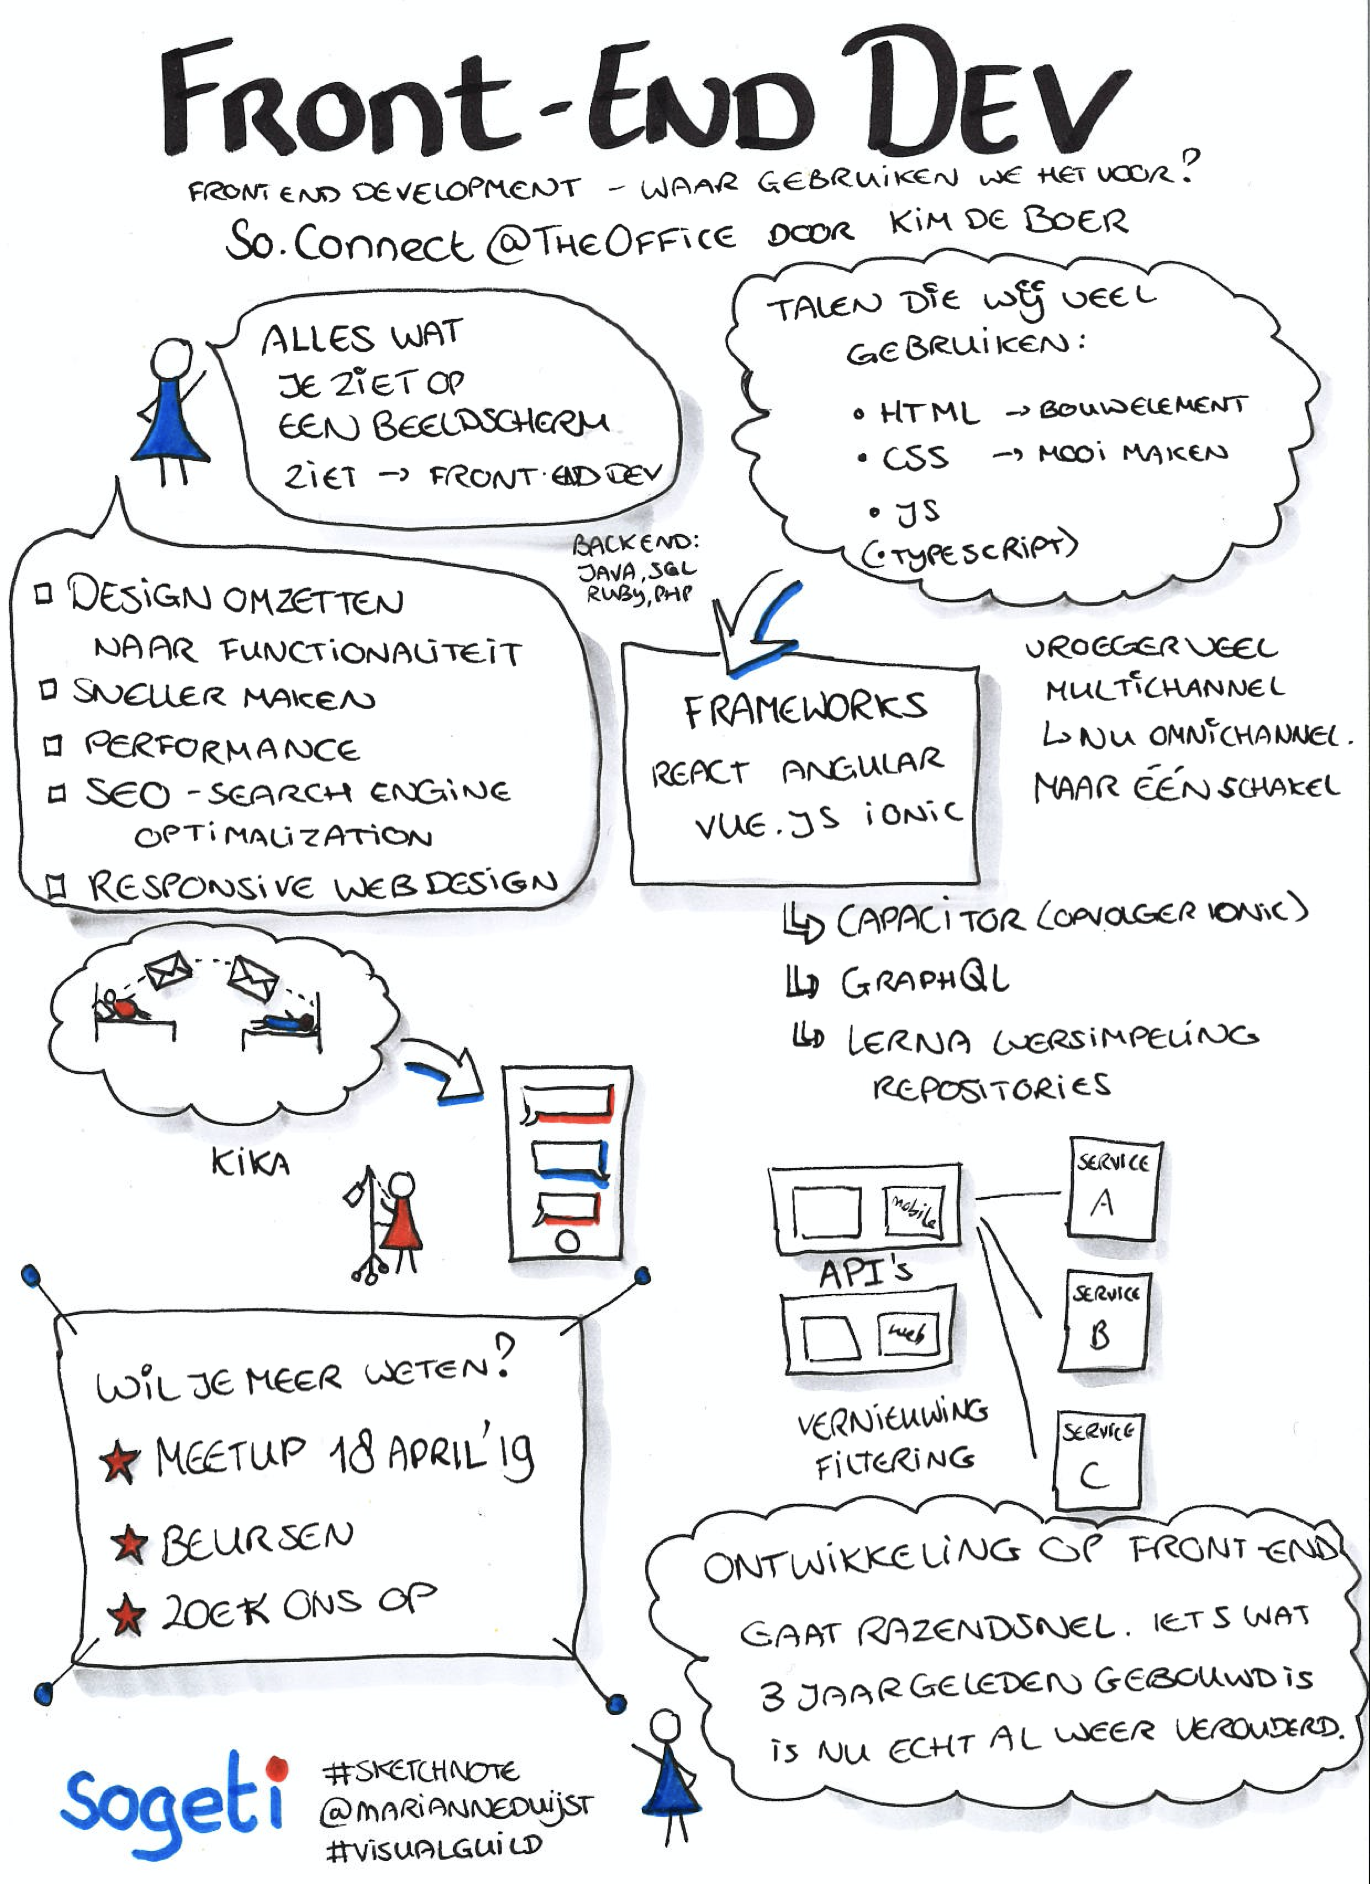 FRONT-END DEV
FRONT END DEVELOPMENT - WAAR GEBRUIKEN WE HET VOOR?
So.Connect @THEOFFICE DOOR KIM DE BOER
ALLES WAT
JE ZIET OP
EEN BEELDSCHERM
ZIET → FRONT-END DEV
TALEN DIE WIJ VEEL
GEBRUIKEN:
• HTML → BOUWELEMENT
• CSS → MOOI MAKEN
• JS
(• TYPESCRIPT)
BACKEND:
JAVA, SQL
RUBY, PHP
DESIGN OMZETTEN
NAAR FUNCTIONALITEIT
SNELLER MAKEN
PERFORMANCE
SEO - SEARCH ENGINE
OPTIMALIZATION
RESPONSIVE WEB DESIGN
FRAMEWORKS
REACT ANGULAR
VUE.JS IONIC
VROEGER VEEL
MULTICHANNEL
↳ NU OMNICHANNEL.
NAAR ÉÉN SCHAKEL
↳ CAPACITOR (OPVOLGER IONIC)
↳ GRAPHQL
↳ LERNA VERSIMPELING
REPOSITORIES
KIKA
mobile
API's
web
SERVICE
A
SERVICE
B
SERVICE
C
VERNIEUWING
FILTERING
WIL JE MEER WETEN?
★ MEETUP 18 APRIL '19
★ BEURSEN
★ ZOEK ONS OP
ONTWIKKELING OP FRONT-END
GAAT RAZENDSNEL. IETS WAT
3 JAAR GELEDEN GEBOUWD IS
IS NU ECHT AL WEER VEROUDERD.
sogeti
#SKETCHNOTE
@MARIANNEDUIJST
#VISUALGUILD